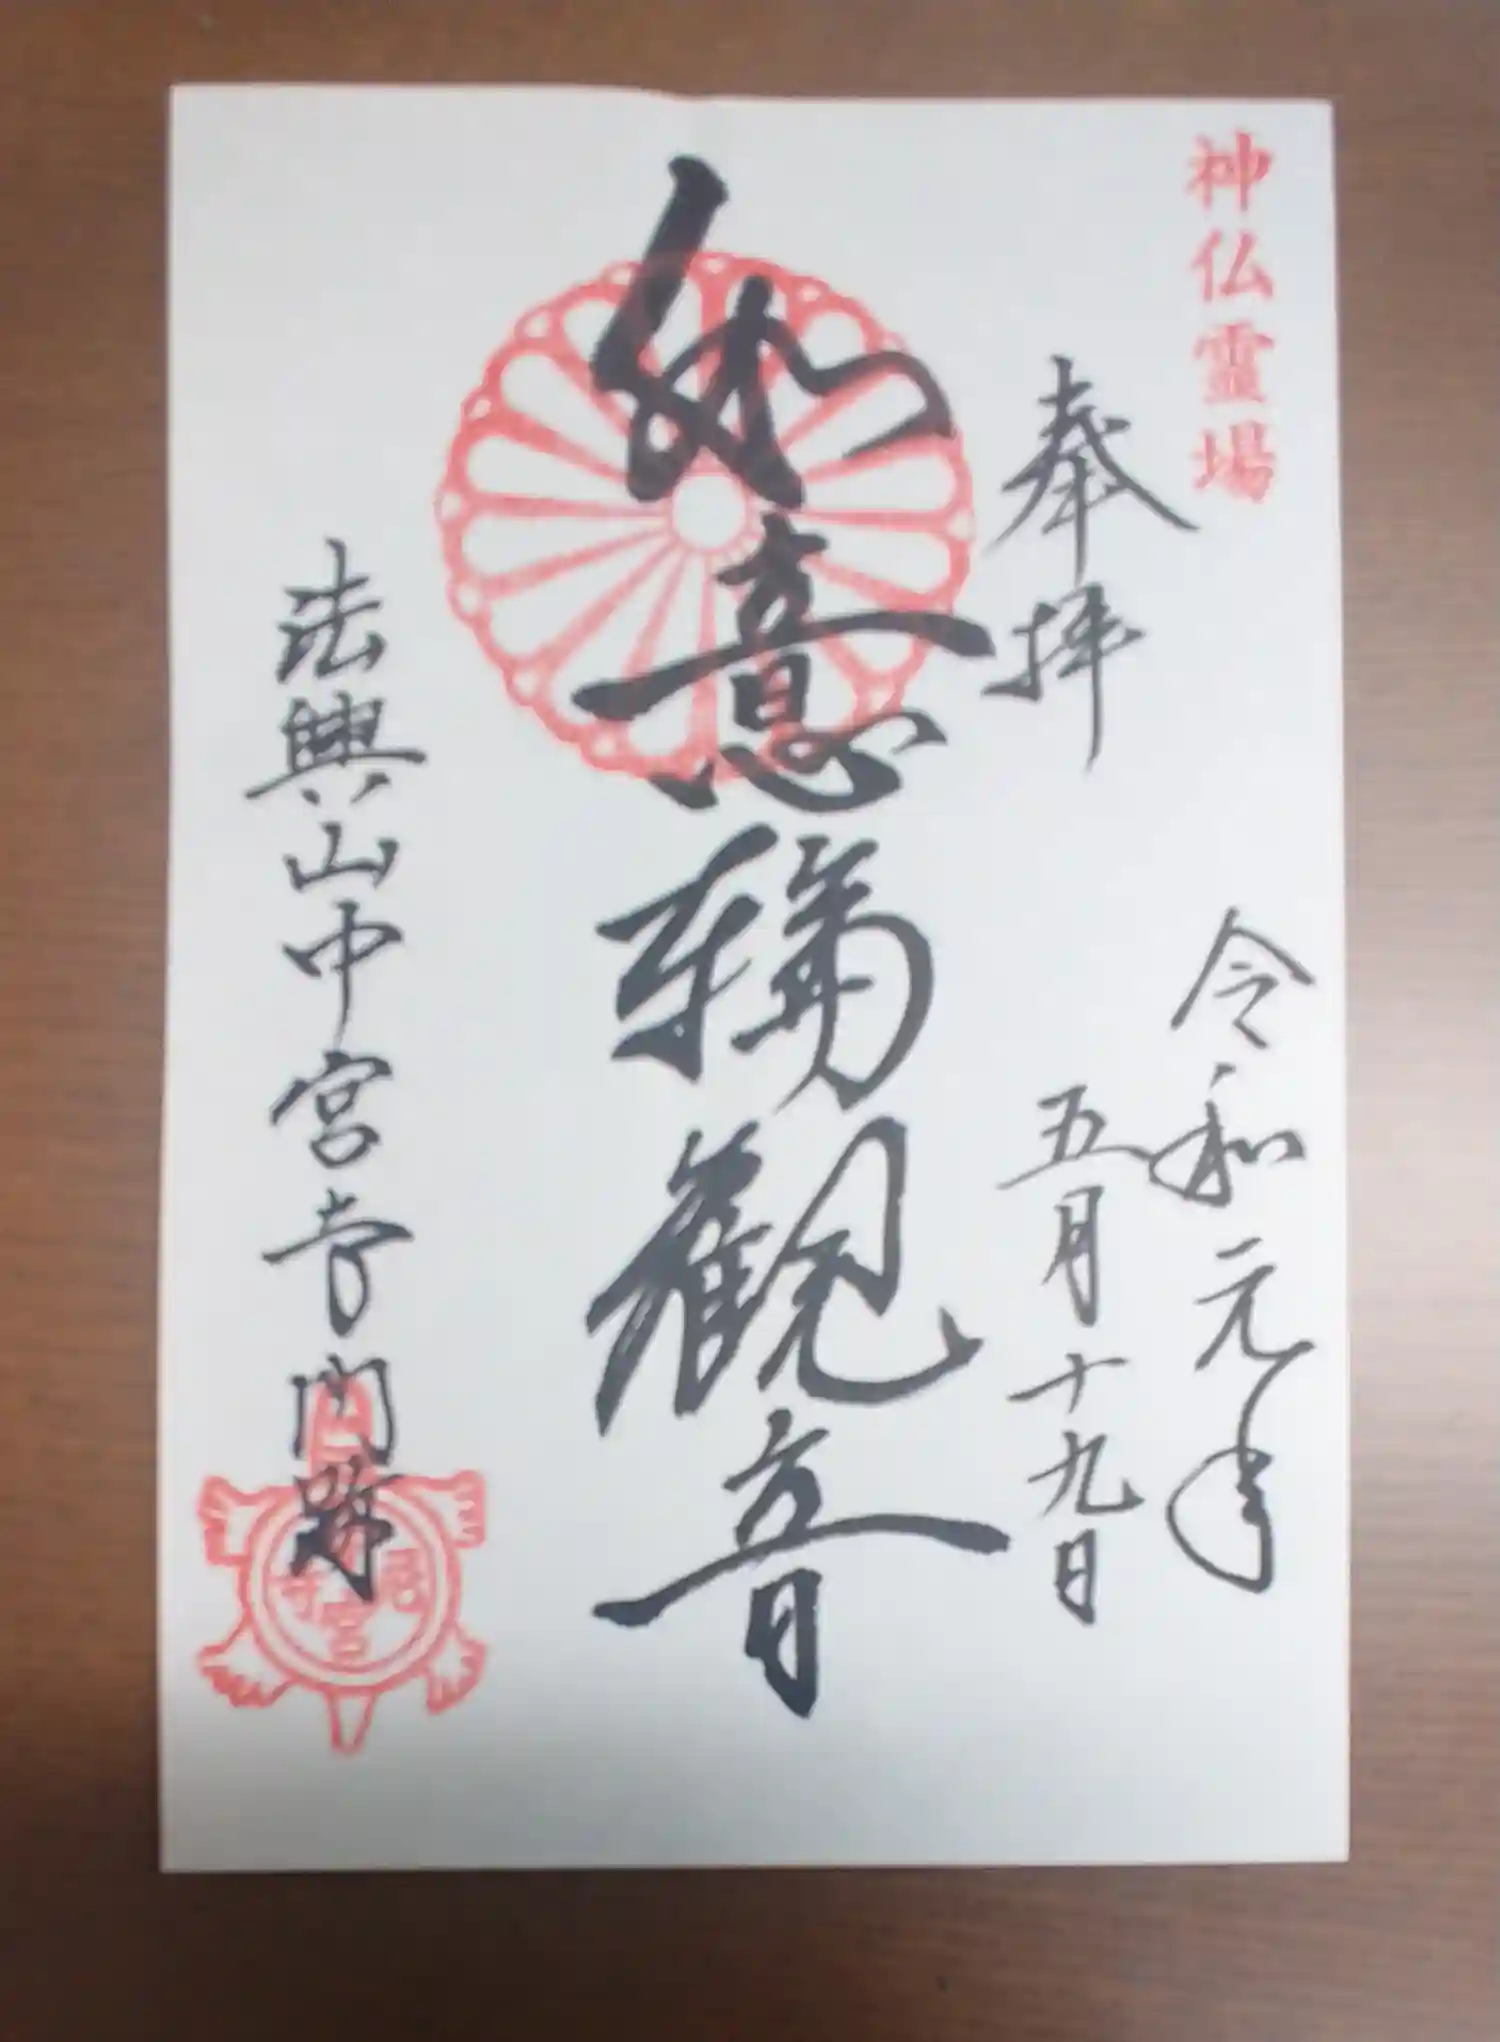 神仏霊場
奉拝
令和元年
五月十九日
如意輪觀音
法興山中宮寺門跡
中宮尼寺